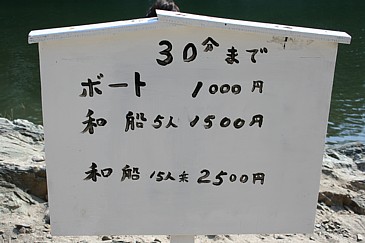 30分まで
ボート 1000円
和船5人 1500円
和船15人末 2500円